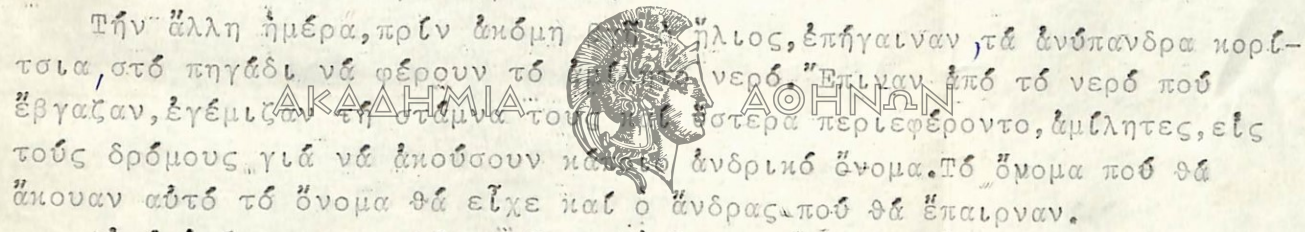 Τήν ἄλλη ἡμέρα,πρίν ἀκόμη βγῆ ὁ ἥλιος,ἐπήγαιναν,τά ἀνύπανδρα κορί-
τσια,στό πηγάδι νά φέρουν τό ἀμίλητο νερό.Ἔπιναν ἀπό τό νερό πού
ἔβγαζαν,ἐγέμιζαν τή στάμνα τους καί ὕστερα περιεφέροντο,ἀμίλητες,εἰς
ΑΚΑΔΗΜΙΑ ΑΘΗΝΩΝ
τούς δρόμους γιά νά ἀκούσουν κάποιο ἀνδρικό ὄνομα.Τό ὄνομα πού θά
ἄκουαν αὐτό τό ὄνομα θά εἶχε καί ὁ ἄνδρας πού θά ἔπαιρναν.